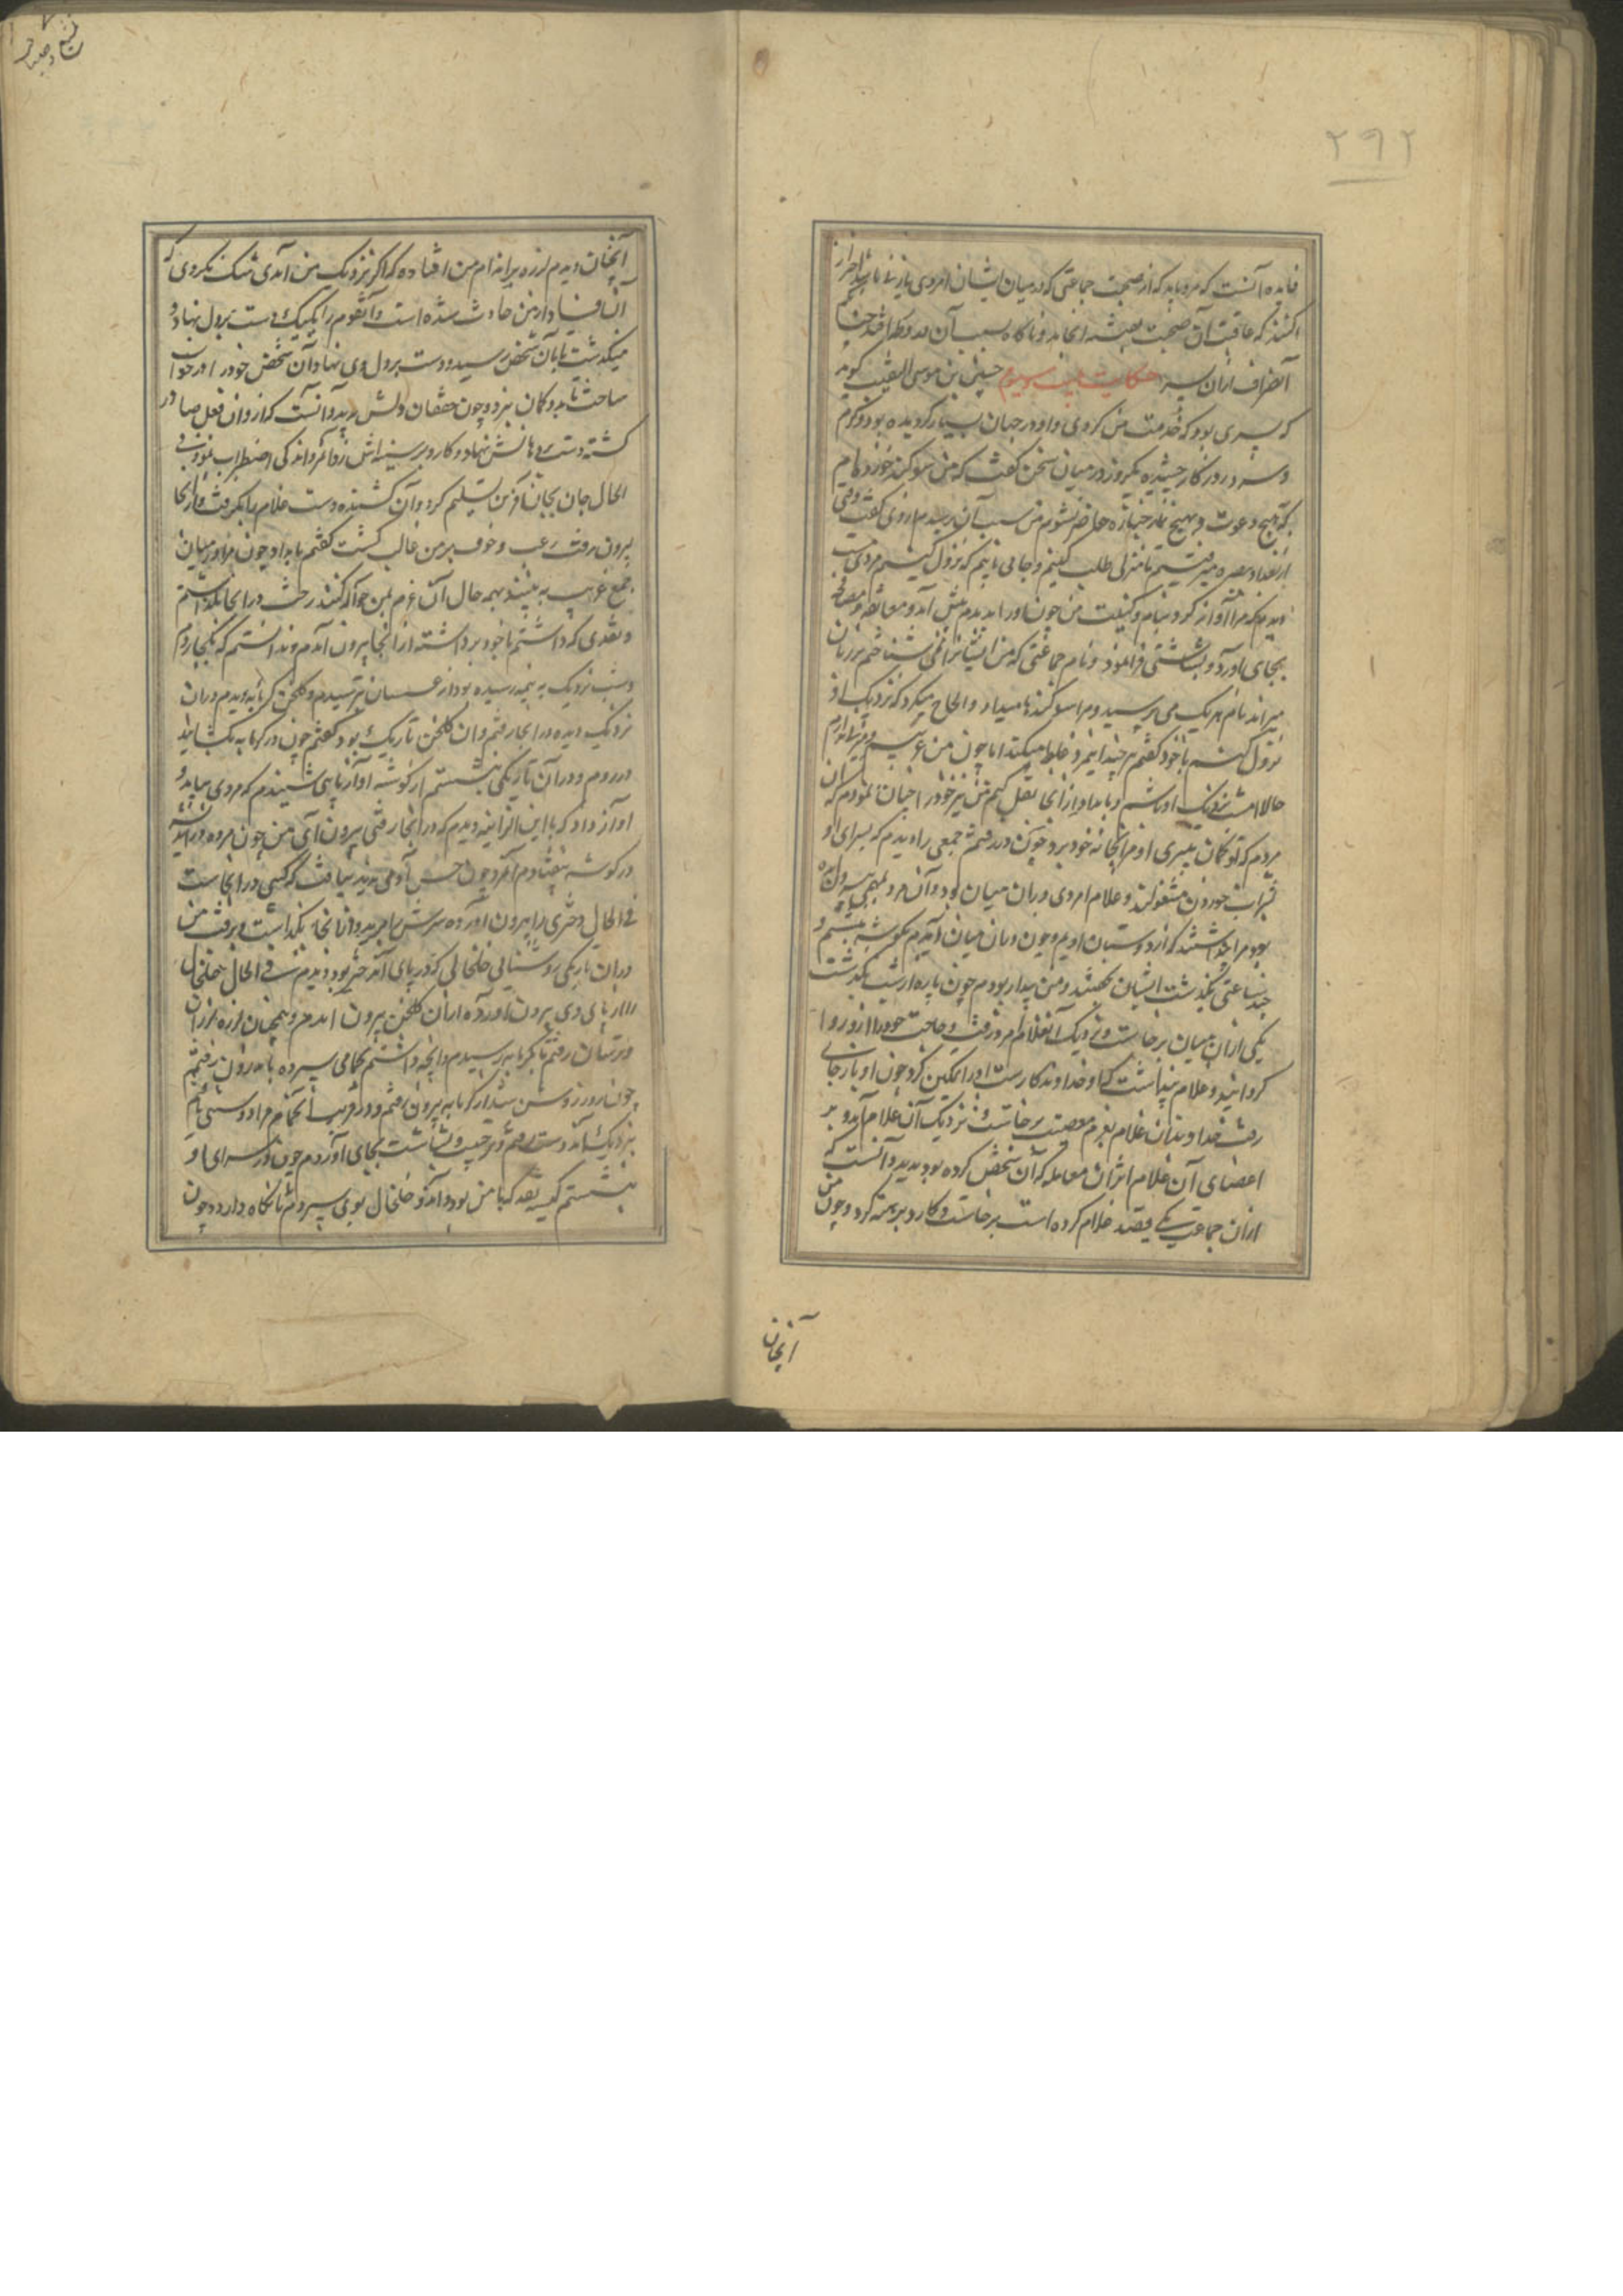 ۲۹۲
فایده آنست که مرد باید که از صحبت جماعتی که در میان ایشان امردی یا زنی باشد احتراز
کند که عاقبت آن صحبت بفتنه انجامد و ناگاه بسبب آن
انصراف ازان میسر حکایت بیست و سیوم حسین بن موسی النقیب گوید
که پسری بود که خدمت من کردی و او در جهان بسیار گردیده بود و گرم
و سرد روزگار چشیده یکروز در میان سخن گفت که من سوگند خورده ام
که بهیچ دعوت و بهیچ نماز جنازه حاضر نشوم من سبب آن پرسیدم از وی گفت وقتی
از بغداد ببصره میرفتم تا منزلی طلب کنیم و جامی یابیم که نزول کنیم مردی
دیدم که مرا آواز کرد بنام و کنیت من چون او را بدیدم پیش آمد و معانقه و مصافحه
بجای آورد و بشاشتی فرانمود و نام جماعتی که من ایشانرا می شناختم بر زبان
میراند نام هر یک می پرسید و مرا سوگندها میداد و الحاح میکرد که نزدیک او
نزول کنم با خود گفتم هر چند این مرد غلط میکند اما چون من غریبم و
حالا امشب نزدیک او باشم و بامداد از انجا نقل کنم من نیز خود را چنان نمودم که
مردم که تو گمان میبری او مرا بخانه خود برد چون در رفتم جمعی را دیدم که بسرای او
بشراب خوردن مشغولند و غلام امردی در ان میان بود و آن مرد بمهمی بیرون
بود مرا پنداشتند که از دوستان اویم و چون در ان میان در آمدم بگوشه بنشستم و
چند ساعتی بگذشت ایشان بخفتند و من بیدار بودم چون پاره از شب بگذشت
یکی ازان میان برخاست و نزدیک آنغلام امرد رفت و حاجت خود را ازو روا
گردانید و غلام پنداشت که او خداوندگار است او را تمکین کرد چون او باز جای
رفت خداوند آن غلام بعزم معصیت برخاست و نزدیک آن غلام آمد و بر
اعضای آن غلام اثر آن معامله که آن شخص کرده بود بدید و دانست که
ازان جماعت یکی قصد غلام کرده است برخاست و کارد برهنه کرد و چون من
آنچنان
آنچنان دیدم لرزه بر اندام من افتاده که اگر نزدیک من آمدی شک نکردی که
آن فساد از من حادث شده است و آنقوم را یکیک دست بر دل نهاد و
میگذشت تا بآن شخص رسید و دست بر دل وی نهاد و آن شخص خود را در خواب
ساخت تا بدو گمان نبرد و چون خفقان دلش بدید و دانست که ازو آن فعل صادر
گشته دست بر دهانش نهاد و کارد بر سینه اش زد آنمرد اندکی اضطراب نمود و فی
الحال جان بجان آفرین تسلیم کرد و آن کشنده دست غلام را بگرفت و از انجا
بیرون رفت رعب و خوف بر من غالب گشت گفتم بامداد چون مرا در میان
جمع غریب به بینند بهمه حال آن غرم بمن حواله کنند رخت در انجا بگذاشتم
و نقدی که داشتم با خود برداشته از انجا بیرون آمدم و ندانستم که بکجا روم
و شب نزدیک به نیمه رسیده بود از عسسان ترسیدم و گلخن گرمابه دیدم در ان
نزدیک دیده در انجا رفتم و ان گلخن تاریک بود گفتم چون در گرمابه بگشایند
در روم و در آن تاریکی بنشستم از گوشه آواز پایی شنیدم که مردی میآید و
آواز داد که با این انر اینه دیدم که در انجا رفتی بیرون آی من چون مرده در آمد
در گوشه بیفتادم آنمرد چون حس آدمی ندید نیافت که کسی در انجاست
فی الحال دختری را بیرون آورده سرش را ببرید و از انجا بگذاشت و برفت من
در ان تاریکی روشنایی خلخالی که در پای آن دختر بود دیدم فی الحال خلخال
از پای وی بیرون آورده از ان گلخن بیرون آمدم و همچنان لرزه لرزان
و ترسان رفتم تا بگرمابه رسیدم و آنچه داشتم بحمامی سپرده باندرون رفتم
چون روز روشن شد از گرمابه بیرون رفتم و در قرب آنحمام مرا دوستی بام
نزدیک آمد دست رفتم و ترحیب و بشاشت بجای آوردم چون در سرای او
بنشستم کیسه نقد که با من بود و آندو خلخال بوی سپردم تا نگاه دارد و چون